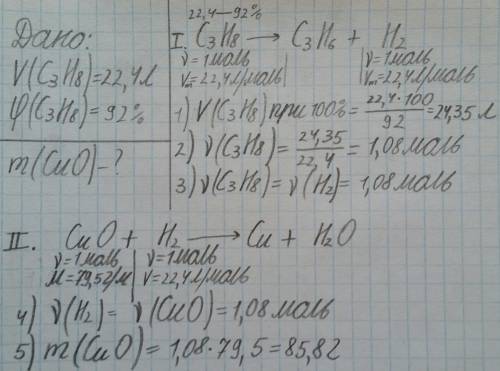 Дано:
V(C₃H₈)=22,4л
φ(C₃H₈)=92%
m(CuO)-?
22,4—92%
I. C₃H₈ → C₃H₆ + H₂
ν=1моль |ν=1моль
Vₘ=22,4л/моль| |Vₘ=22,4л/моль
1) V(C₃H₈) при 100% = 22,4·100/92 = 24,35 л
2) ν(C₃H₈) = 24,35/22,4 = 1,08моль
3) ν(C₃H₈) = ν(H₂) = 1,08моль
II. CuO + H₂ → Cu + H₂O
ν=1моль | ν=1моль
M=79,5г/м | V=22,4л/моль
4) ν(H₂) = ν(CuO) = 1,08 моль
5) m(CuO) = 1,08·79,5 = 85,8г